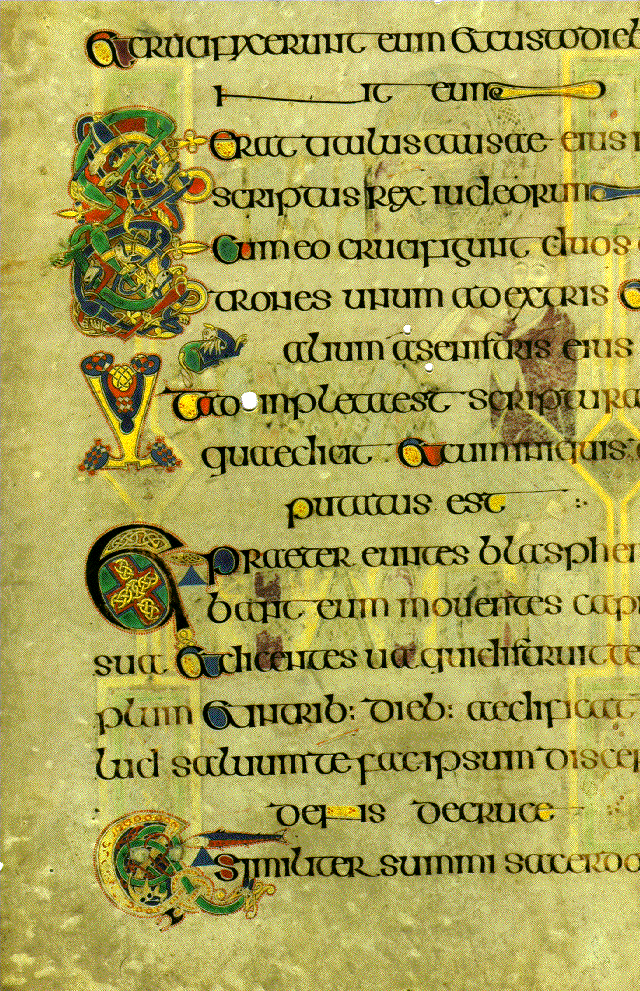 Et crucifixerunt eum Et custodieb
nt eum
Erat titulus causae eius i
scriptus rex iudeorum
Et cum eo crucifigunt duos
atrones unum adextris
alium asenistris eius
inpletaest scriptura
quae dicit Et cum iniquis
putatus est
praeter euntes blasphem
bant eum mouentes capi
sua Et dicentes ua qui distruit te
plum Et intrib: dieb: aedificat
lud saluum te fac ipsum discen
dens decruce
similiter summi sacerdo